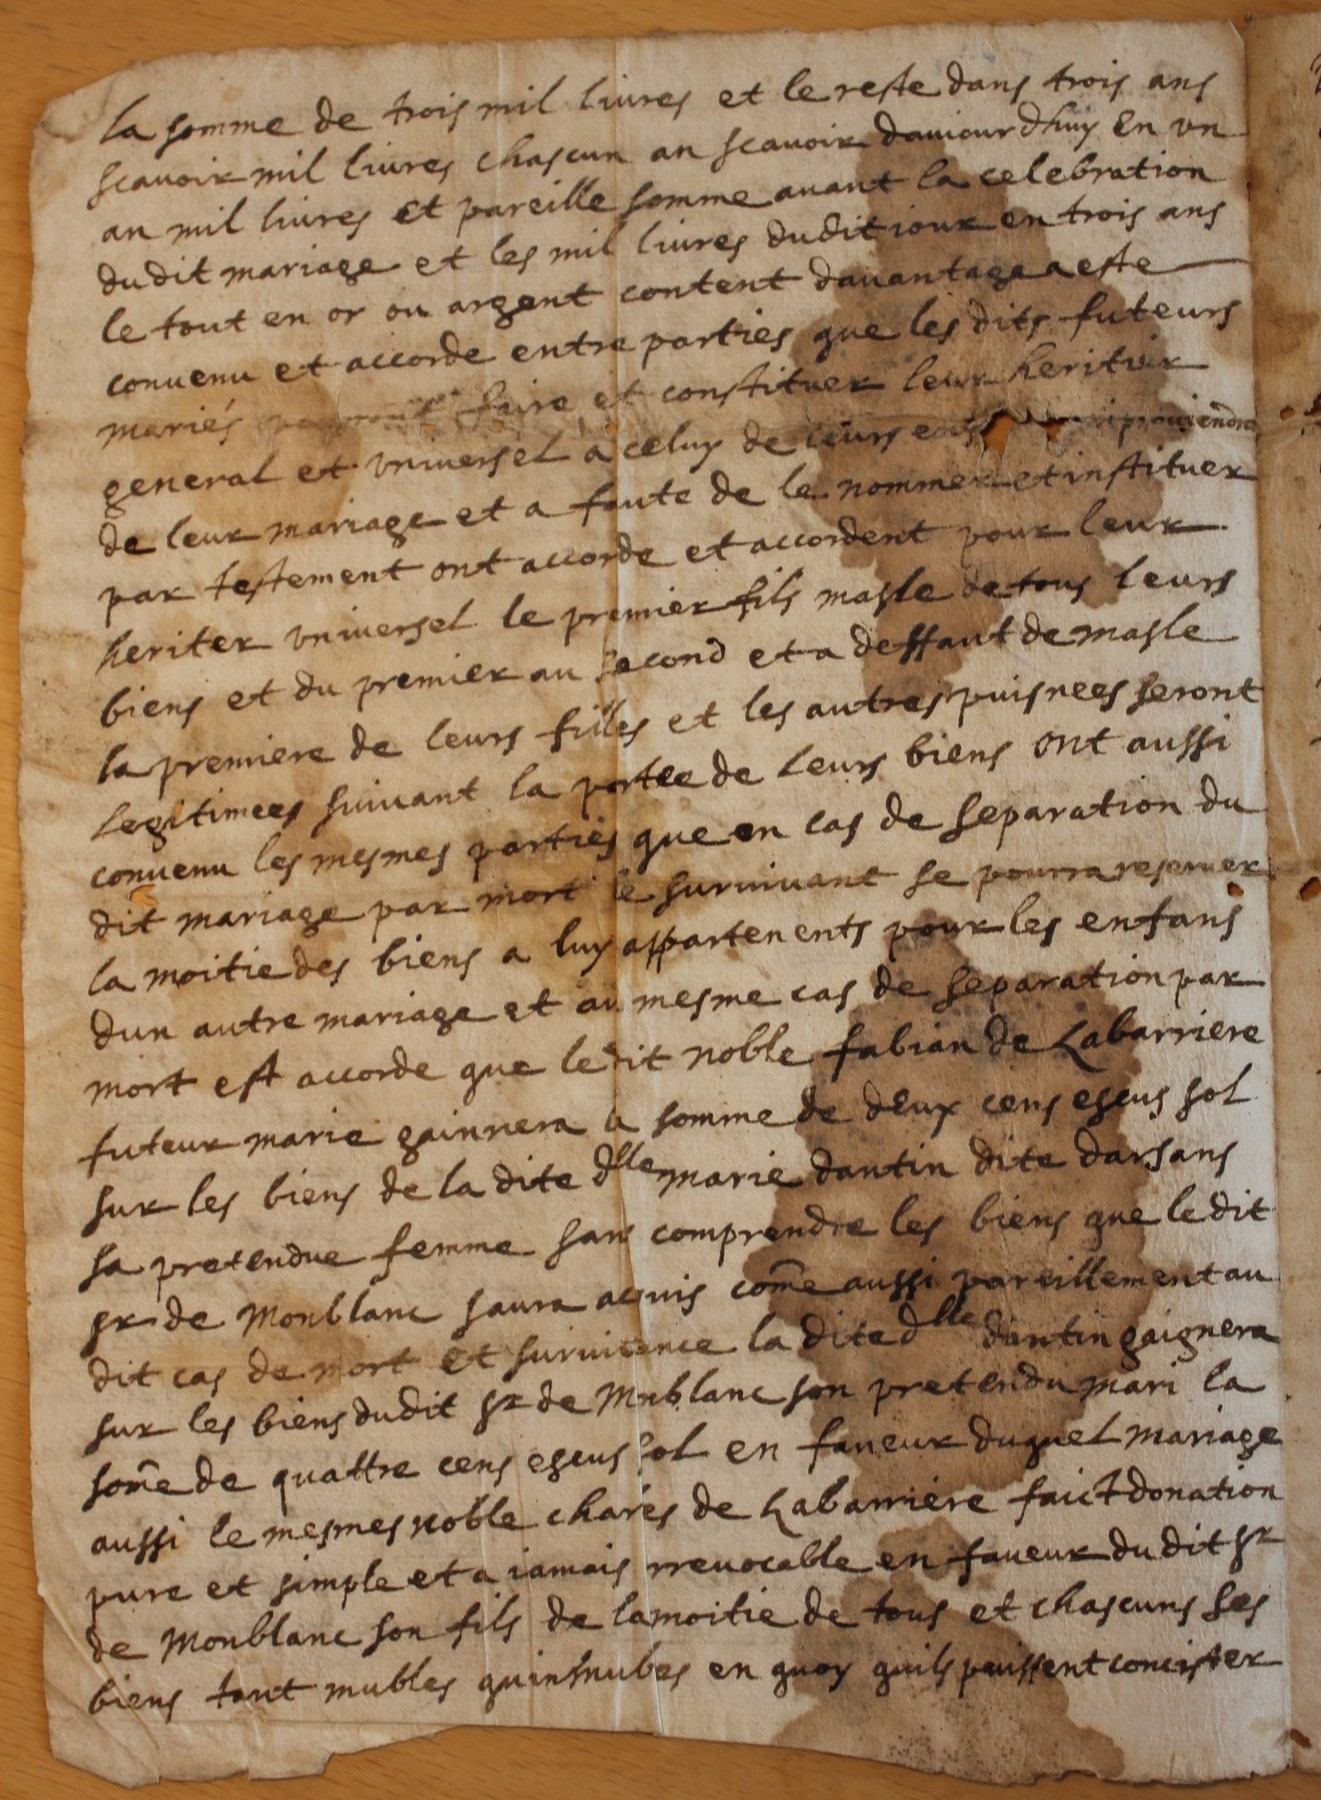 la somme de trois mil livres et le reste dans trois ans
scavoir mil livres chascun an scavoir daujourdhuy En un
an mil livres et pareille somme avant la celebration
dudit mariage et les mil livres dudit jour en trois ans
le tout en or ou argent content davantage a este
convenu et accorde entre parties que les dits futeurs
mariés faire et constituer leur heritier
general et universel a celuy de leurs proviendra
de leur mariage et a faute de le nommer et instituer
par testement ont accorde et accordent pour leur
heriter universel le premier fils masle de tous leurs
biens et du premier au second et a deffaut de masle
la premiere de leurs filles et les autres puisnees seront
legitimees suivant la portee de leurs biens ont aussi
convenu les mesmes parties que en cas de separation du
dit mariage par mort le survivant se pourra reserver
la moitie des biens a luy appartenents pour les enfans
dun autre mariage et au mesme cas de separation par
mort est accorde que ledit noble fabian de Labarriere
futeur marie gainnera la somme de deux cens escus sol
sur les biens de la dite dlle marie dantin dite darsans
sa pretendue femme sans comprendre les biens que ledit
sr de Monblanc saura aquis come aussi pareillement au
dit cas de mort et survivence la dite dlle dantin gaignera
sur les biens dudit sr de Monblanc son pretendu mari la
some de quattre cens escus sol en faveur duquel mariage
aussi le mesmes noble charles de Labarriere faict donation
pure et simple et a jamais irrevocable en faveur du dit sr
de Monblanc son fils de la moitie de tous et chascuns ses
biens tant mubles quinmubes en quoy quils puissent concister